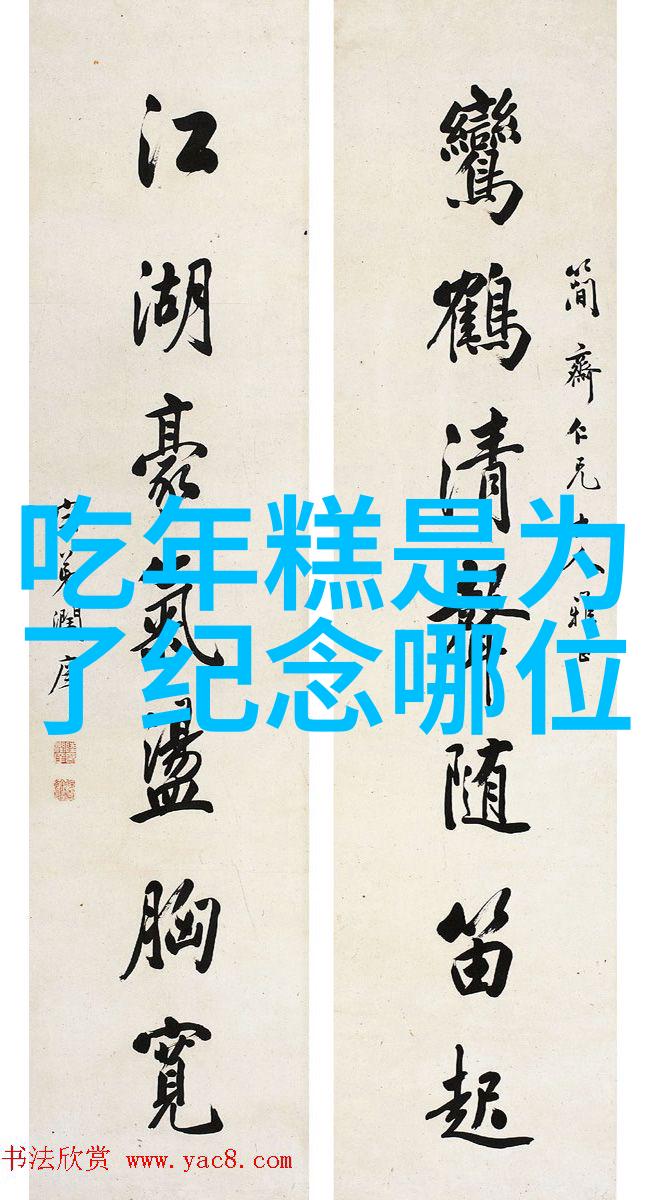 簡齋仁兄大人雅正
鸞鶴清聲随笛起
江湖豪氣盪胸寬
弟潤庠
吃年糕是为
了纪念哪位
书法欣赏 www.yac8.com